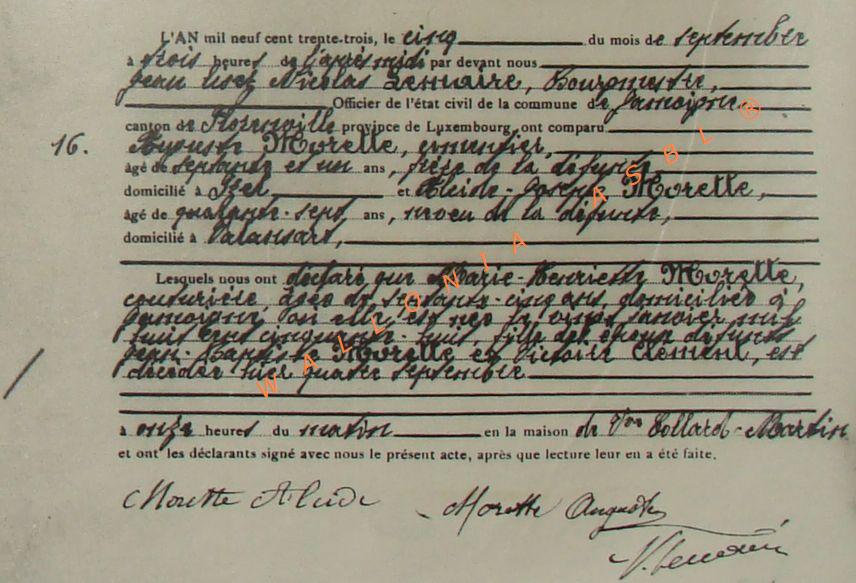 L'AN mil neuf cent trente-trois, le cinq du mois de septembre
à trois heures de l'après midi par devant nous
Jean Nicolas Lemaire, Bourgmestre,
Officier de l'état civil de la commune de Jamoigne
canton de Florenville province de Luxembourg, ont comparu
16. Auguste Morette, cimentier,
âgé de septante et un ans, frère de la défunte
domicilié à Izel et Alcide-Joseph Morette,
âgé de quarante-sept ans, neveu de la défunte,
domicilié à Valansart,
Lesquels nous ont déclaré que Marie-Henriette Morette,
couturière, âgée de septante-cinq ans, domiciliée à
Jamoigne, où elle est née le vingt janvier mil
huit cent cinquante-huit, fille des époux défunts
Jean-Baptiste Morette et Victoire Clément, est
décédée hier quatre septembre
à onze heures du matin en la maison de Vve Collard-Martin
et ont les déclarants signé avec nous le présent acte, après que lecture leur en a été faite.
Morette Alcide Morette Auguste
N. Lemaire
WALLONIA ASBL ®